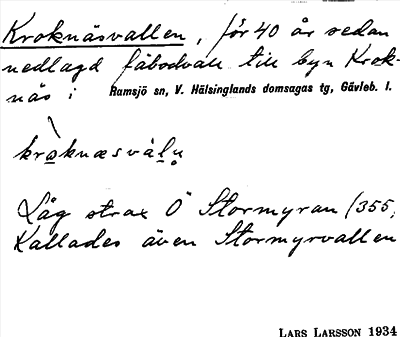 Kroknäsvallen, för 40 år sedan
nedlagd fäbodvall till byn Krok-
näs i Ramsjö sn, V. Hälsinglands domsagas tg, Gävleb. l.
Låg strax Ö Stormyran (355,
Kallades även Stormyrvallen
LARS LARSSON 1934